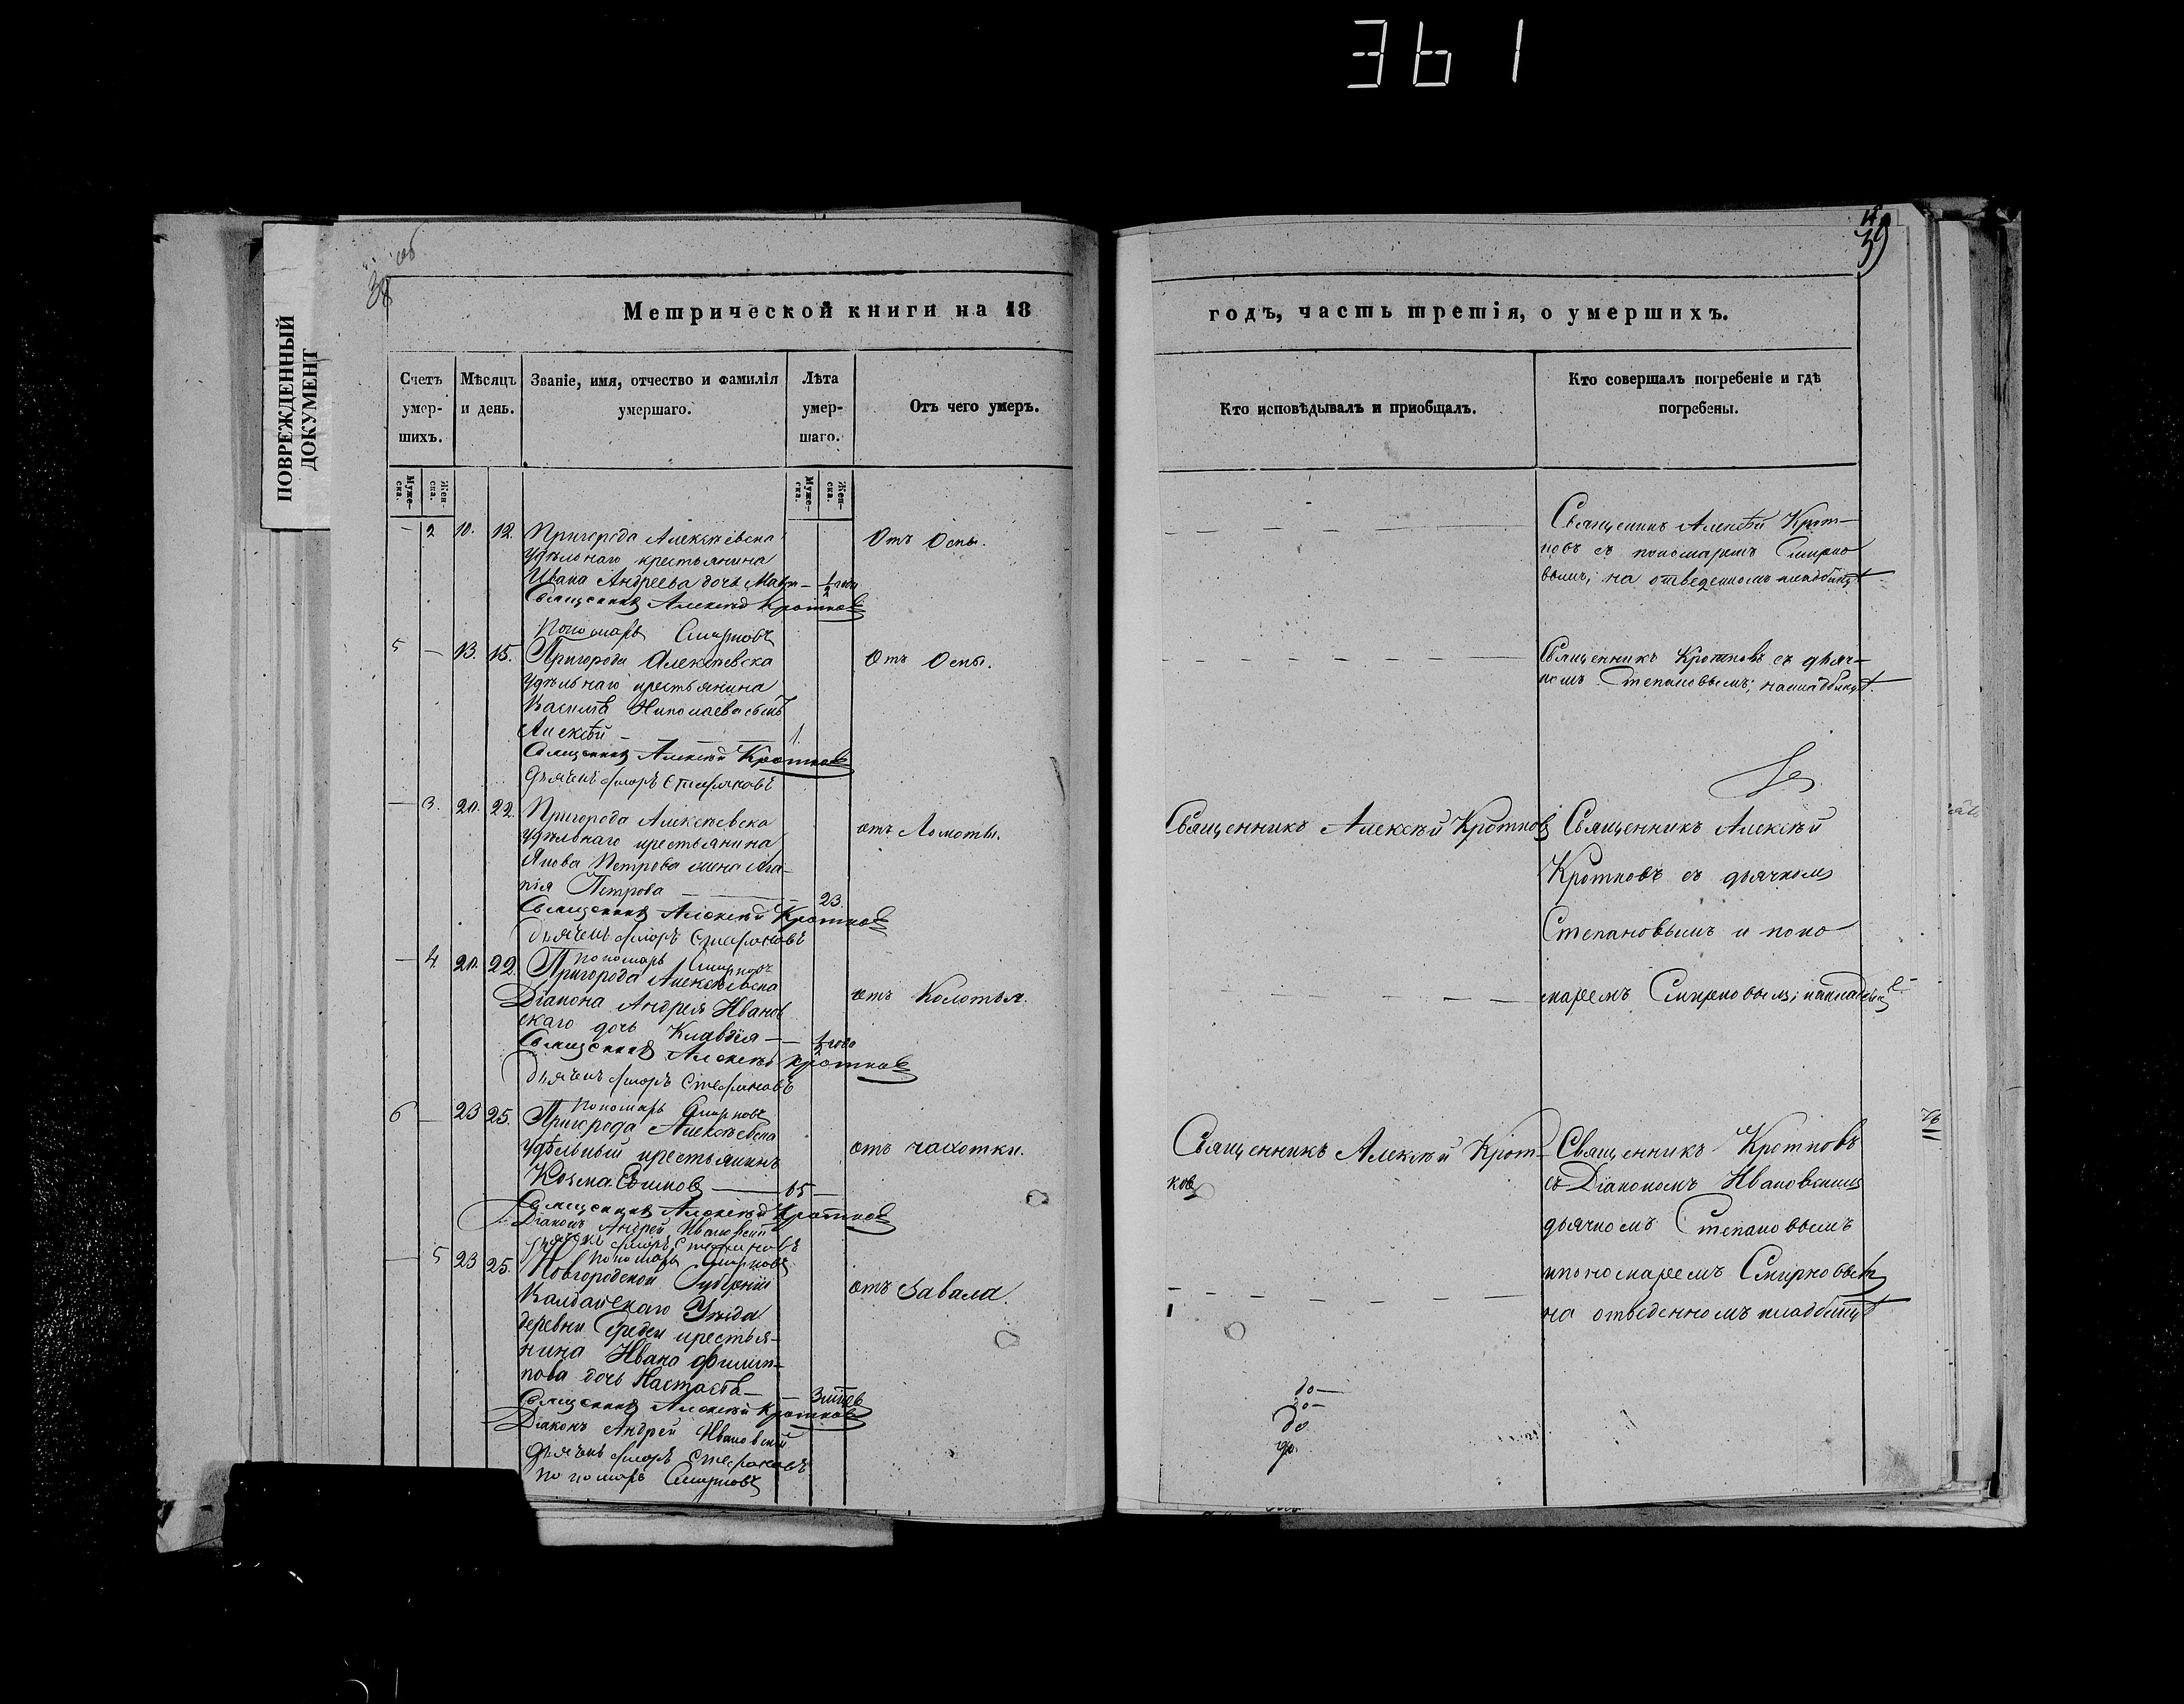 361
ПОВРЕЖДЕННЫЙ
ДОКУМЕНТ
38 об
Метрической книги на 18
Счетъ умер-шихъ.
Мѣсяцъ и день.
Званіе, имя, отчество и фамилія умершаго.
Лѣта умер-шаго.
Отъ чего умеръ.
Муже-ска.
Жен-ска.
Муже-ска.
Жен-ска.
— 2 10. 12. Пригорода Алексѣевска
удѣльнаго крестьянина
Ивана Андреева дочь — 1/2 года
Отъ Оспы.
Священникъ Алексѣй Кротковъ
Пономарь Смирновъ
5 — 13. 15. Пригорода Алексѣевска
удѣльнаго крестьянина
Николаева сынъ
Алексѣй — 1.
Отъ Оспы.
Священникъ Алексѣй Кротковъ
Дьячекъ Стефановъ
— 3. 20. 22. Пригорода Алексѣевска
удѣльнаго крестьянина
Якова Петрова жена Ага-
пія Петрова — 23.
отъ Ломоты.
Священникъ Алексѣй Кротковъ
Дьячекъ Стефановъ
Пономарь Смирновъ
— 4. 20. 22. Пригорода Алексѣевска
Діакона Андрея Иванов
скаго дочь Клавдія — 1/2 года
отъ Колотья.
Священникъ Алексѣй Кротковъ
Дьячекъ Стефановъ
Пономарь Смирновъ
6 — 23 25. Пригорода Алексѣевска
удѣльный крестьянинъ
Козма — 65 —
отъ чахотки.
Священникъ Алексѣй Кротковъ
Діаконъ Андрей Ивановскій
Пономарь Смирновъ
— 5 23 25. Новгородской Губерніи
Валдайскаго Уѣзда
деревни крестья-
нина Ивана Филип-
пова дочь —
отъ Завала.
Священникъ Алексѣй Кротковъ
Діаконъ Андрей Ивановскій
Дьячекъ Стефановъ
Пономарь Смирновъ
39
годъ, часть третія, о умершихъ.
Кто исповѣдывалъ и приобщалъ.
Кто совершалъ погребеніе и гдѣ погребены.
Священникъ Алексѣй Крот-
ковъ съ пономаремъ Смирно
вымъ, на отведенномъ кладбищѣ
Священникъ Кротковъ съ дьяч-
комъ Степановымъ; на кладбищѣ.
Священникъ Алексѣй Кротковъ
Священникъ Алексѣй
Кротковъ съ дьячкомъ
Степановымъ и поно
маремъ Смирновымъ; на кладбищѣ
Священникъ Алексѣй Крот-
ковъ
Священникъ Кротковъ
съ Діакономъ Ивановскимъ
дьячкомъ Степановымъ
и пономаремъ Смирновым
на отведенномъ кладбищѣ